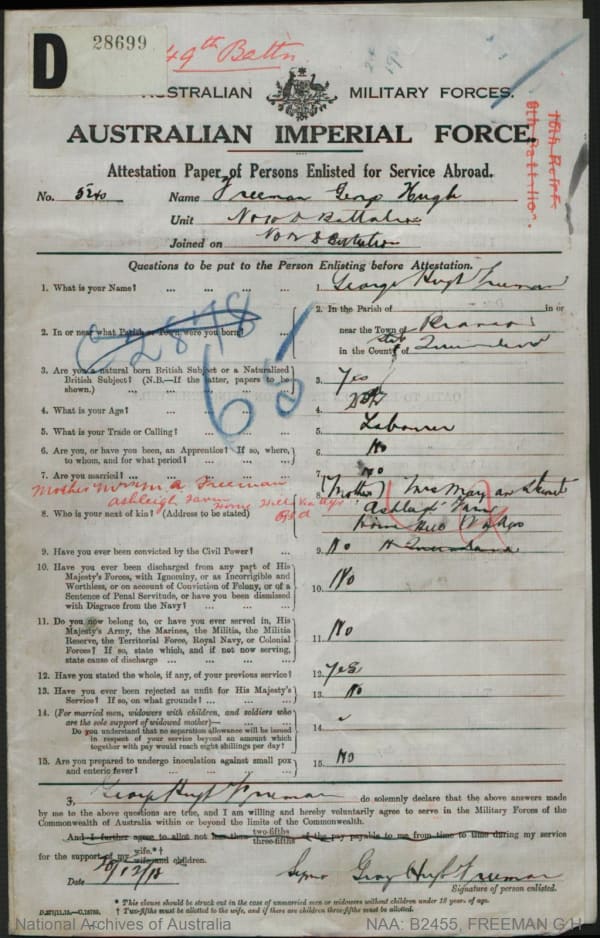 D 28699
49th Battn
AUSTRALIAN MILITARY FORCES.
AUSTRALIAN IMPERIAL FORCE.
15th Rein
9th Battalion.
Attestation Paper of Persons Enlisted for Service Abroad.
No. 5240 Name Freeman George Hugh
Unit No 2 D Battalion
Joined on
Questions to be put to the Person Enlisting before Attestation.
1. What is your Name? ... ... ... 1. George Hugh Freeman
2. In or near what Parish or Town were you born? ... 2. In the Parish of in or
near the Town of
in the County of State Queensland
3. Are you a natural born British Subject or a Naturalized
British Subject? (N.B.—If the latter, papers to be
shown.) ... ... ... 3. Yes
4. What is your Age? ... ... ... 4.
5. What is your Trade or Calling? ... ... 5. Labourer
6. Are you, or have you been, an Apprentice? If so, where,
to whom, and for what period? ... ... 6. No
7. Are you married? ... ... ... 7. No
Mother Freeman
Ashleigh Farm Home Hill via Ayr
Qld
8. Who is your next of kin? (Address to be stated) ... 8. (Mother) Mrs Mary an Stewart
Ashleigh Farm
Home Hill Via Ayr
N Queensland
9. Have you ever been convicted by the Civil Power? ... 9. No
10. Have you ever been discharged from any part of His
Majesty's Forces, with Ignominy, or as Incorrigible and
Worthless, or on account of Conviction of Felony, or of a
Sentence of Penal Servitude, or have you been dismissed
with Disgrace from the Navy? ... ... 10. No
11. Do you now belong to, or have you ever served in, His
Majesty's Army, the Marines, the Militia, the Militia
Reserve, the Territorial Force, Royal Navy, or Colonial
Forces? If so, state which, and if not now serving,
state cause of discharge ... ... ... 11. No
12. Have you stated the whole, if any, of your previous service? 12. Yes
13. Have you ever been rejected as unfit for His Majesty's
Service? If so, on what grounds? ... ... 13. No
14. (For married men, widowers with children, and soldiers who
are the sole support of widowed mother)—
Do you understand that no separation allowance will be issued
in respect of your service beyond an amount which
together with pay would reach eight shillings per day? 14.
15. Are you prepared to undergo inoculation against small pox
and enteric fever? ... ... ... 15. No
I, George Hugh Freeman do solemnly declare that the above answers made
by me to the above questions are true, and I am willing and hereby voluntarily agree to serve in the Military Forces of the
Commonwealth of Australia within or beyond the limits of the Commonwealth.
And I further agree to allot not less than two-fifths three-fifths of the pay payable to me from time to time during my service
for the support of my wife.*† wife and children.
Date Signed George Hugh Freeman
Signature of person enlisted.
* This clause should be struck out in the case of unmarried men or widowers without children under 18 years of age.
† Two-fifths must be allotted to the wife, and if there are children three-fifths must be allotted.
National Archives of Australia NAA: B2455, FREEMAN G H